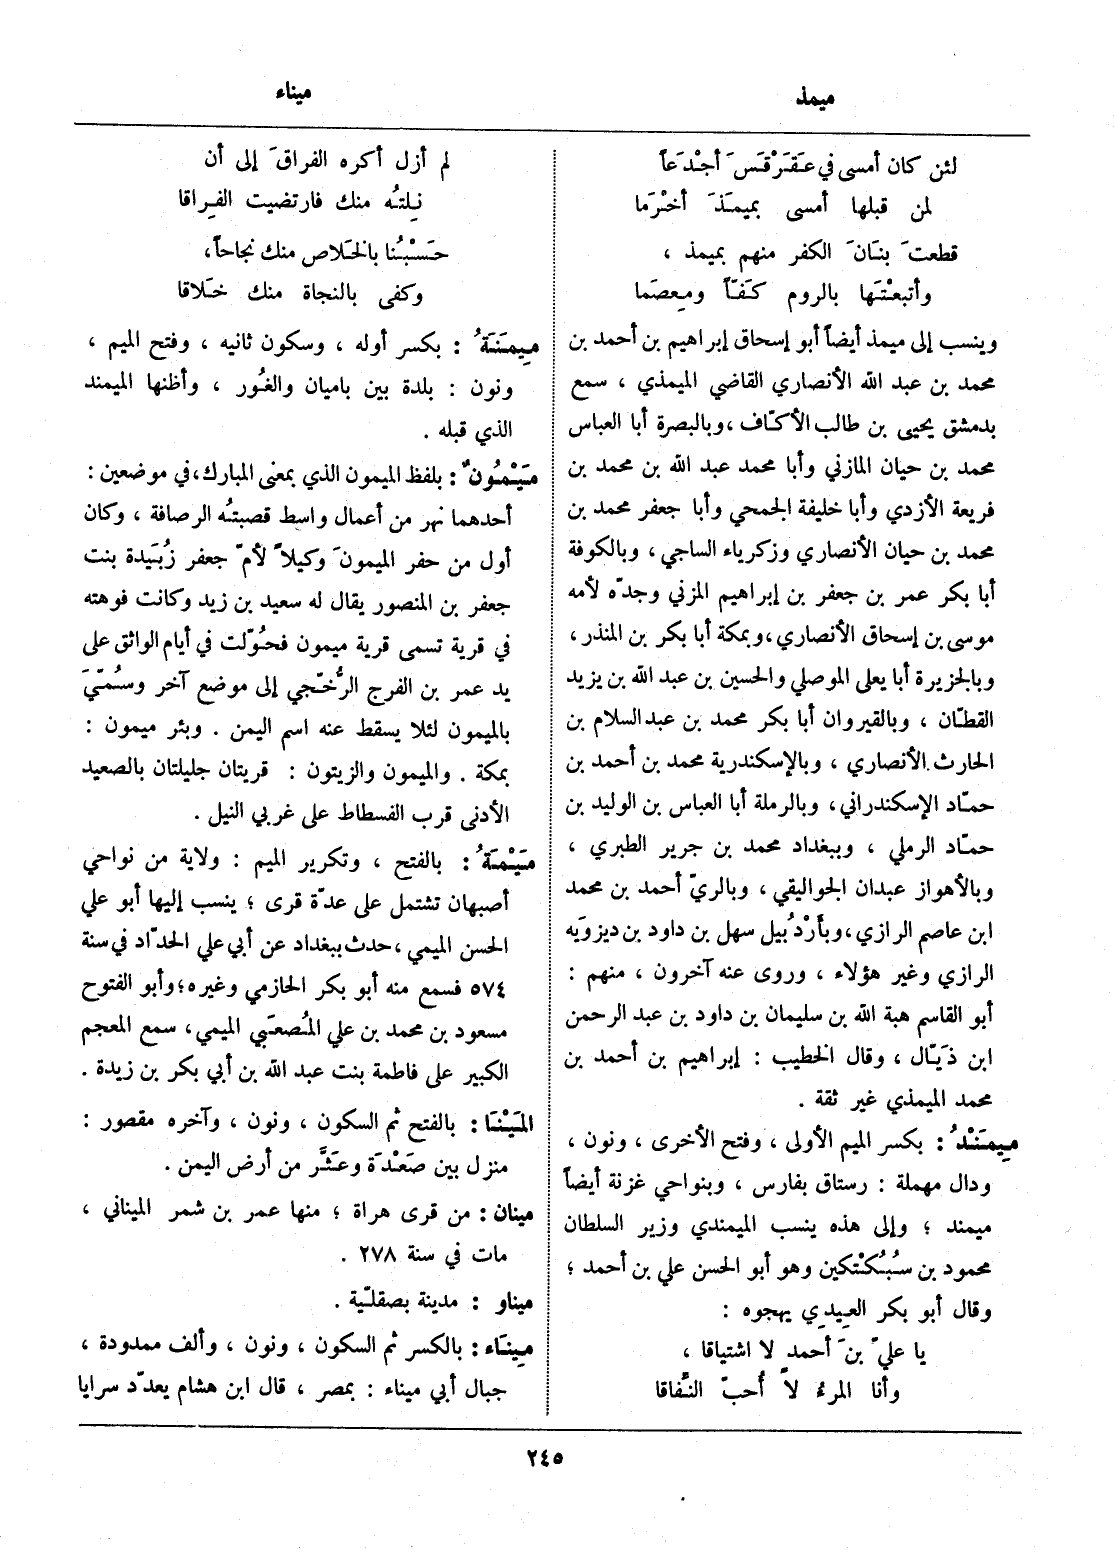 ميمذ
ميناء
لئن كان أمسى في عَقَرْقَسَ أجْدَعاً
لمن قبلها أمسى بميمَذَ أخْرَما
قطعتَ بنَانَ الكفر منهم بميمذ ،
وأتبعْتَها بالروم كَفّاً ومِعصَما
وينسب إلى ميمذ أيضاً أبو إسحاق إبراهيم بن أحمد بن
محمد بن عبد الله الأنصاري القاضي الميمذي ، سمع
بدمشق يحيى بن طالب الأكّاف ، وبالبصرة أبا العباس
محمد بن حيان المازني وأبا محمد عبد الله بن محمد بن
فريعة الأزدي وأبا خليفة الجمحي وأبا جعفر محمد بن
محمد بن حيان الأنصاري وزكرياء الساجي ، وبالكوفة
أبا بكر عمر بن جعفر بن إبراهيم المزني وجدّه لأمه
موسى بن إسحاق الأنصاري ، وبمكة أبا بكر بن المنذر ،
وبالجزيرة أبا يعلى الموصلي والحسين بن عبد الله بن يزيد
القطّان ، وبالقيروان أبا بكر محمد بن عبد السلام بن
الحارث الأنصاري ، وبالإسكندرية محمد بن أحمد بن
حمّاد الإسكندراني ، وبالرملة أبا العباس بن الوليد بن
حمّاد الرملي ، وببغداد محمد بن جرير الطبري ،
وبالأهواز عبدان الجواليقي ، وبالريّ أحمد بن محمد
ابن عاصم الرازي ، وبأَرْدُبيل سهل بن داود بن ديزويه
الرازي وغير هؤلاء ، وروى عنه آخرون ، منهم :
أبو القاسم هبة الله بن سليمان بن داود بن عبد الرحمن
ابن ذَيّال ، وقال الخطيب : إبراهيم بن أحمد بن
محمد الميمذي غير ثقة .
مِيمَنْدُ : بكسر الميم الأولى ، وفتح الأخرى ، ونون ،
ودال مهملة : رستاق بفارس ، وبنواحي غزنة أيضاً
ميمند ؛ وإلى هذه ينسب الميمندي وزير السلطان
محمود بن سُبُكْتكين وهو أبو الحسن علي بن أحمد ؛
وقال أبو بكر العِيدِي يهجوه :
يا عليّ بنَ أحمد لا اشتياقا ،
وأنا المرءُ لا أُحبّ النِّفاقا
لم أزل أكره الفراقَ إلى أن
نِلتُه منك فارتضيت الفِراقا
حَسْبُنا بالخَلاص منك نجاحاً ،
وكفى بالنجاة منك خَلاقا
مِيمَنَةُ : بكسر أوله ، وسكون ثانيه ، وفتح الميم ،
ونون : بلدة بين باميان والغُور ، وأظنها الميمند
الذي قبله .
مَيْمُونٌ : بلفظ الميمون الذي بمعنى المبارك ، في موضعين :
أحدهما نهر من أعمال واسط قصبتُه الرصافة ، وكان
أول من حفر الميمونَ وكيلاً لأمّ جعفر زُبَيدة بنت
جعفر بن المنصور يقال له سعيد بن زيد وكانت فوهته
في قرية تسمى قرية ميمون فحُوّلت في أيام الواثق على
يد عمر بن الفرج الرُّخّجي إلى موضع آخر وسُمّيَ
بالميمون لئلا يسقط عنه اسم اليمن . وبئر ميمون :
بمكة . والميمون والزيتون : قريتان جليلتان بالصعيد
الأدنى قرب الفسطاط على غربي النيل .
مَيْمَةُ : بالفتح ، وتكرير الميم : ولاية من نواحي
أصبهان تشتمل على عدّة قرى ؛ ينسب إليها أبو علي
الحسن الميمي ، حدث ببغداد عن أبي علي الحدّاد في سنة
٥٧٤ فسمع منه أبو بكر الحازمي وغيره ؛ وأبو الفتوح
مسعود بن محمد بن علي المُصعَبي الميمي ، سمع المعجم
الكبير على فاطمة بنت عبد الله بن أبي بكر بن زيدة .
المَيْنَا : بالفتح ثم السكون ، ونون ، وآخره مقصور :
منزل بين صَعْدَة وعَثَّر من أرض اليمن .
مينان : من قرى هراة ؛ منها عمر بن شمر الميناني ،
مات في سنة ٢٧٨ .
ميناو : مدينة بصقلّية .
مِينَاء : بالكسر ثم السكون ، ونون ، وألف ممدودة ،
جبال أبي ميناء : بمصر ، قال ابن هشام يعدّد سرايا
٢٤٥